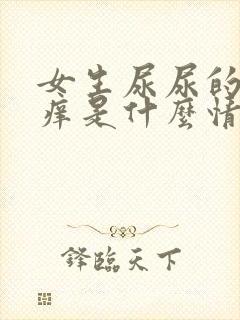 女生尿尿的
痒是什麼情
鋒臨天下